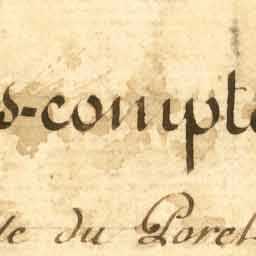 s-compt
le du Porel